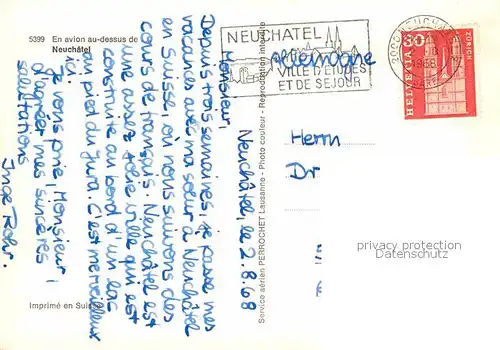 5399 En avion au-dessus de
Neuchâtel
Neuchâtel, le 2.8.68
Monsieur,
Depuis trois semaines, je passe mes
vacances avec ma sœur à Neuchâtel
en Suisse, où nous suivons des
cours de français. Neuchâtel est
une assez jolie ville qui est
construite au bord d'un lac
au pied du Jura. C'est merveilleux
ici
Je vous prie, Monsieur,
d'agréer mes sincères
salutations
Inge Rohr.
Imprimé en Suisse
Service aérien PERROCHET Lausanne - Photo couleur - Reproduction interdite
NEUCHATEL
VILLE D'ETUDES
ET DE SEJOUR
Allemagne
HELVETIA
ZÜRICH
Herrn
Dr
privacy protection
Datenschutz